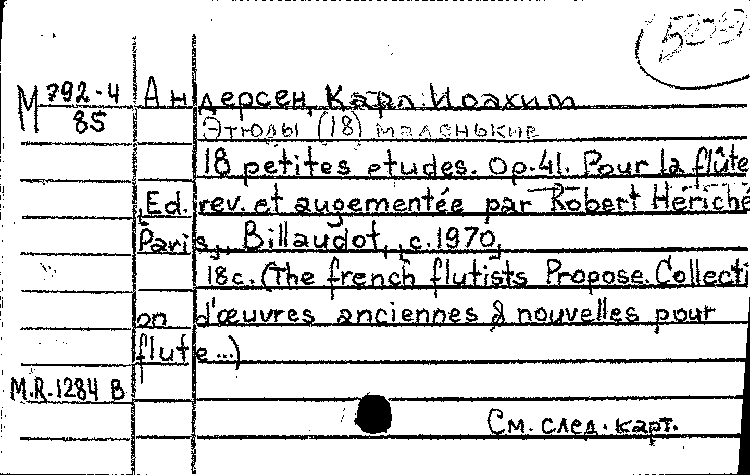 М 792-4
85
Андерсен, Карл Иоахим
Этюды (18) маленькие
18 petites etudes. Op. 41. Pour la flûte
Ed. rev. et augementée par Robert Hériché
Paris, Billaudot, c. 1970,
18 c. (The french flutists Propose. Collecti
on d'œuvres anciennes & nouvelles pour
flute...)
M.R. 1284 B
См. след. карт.